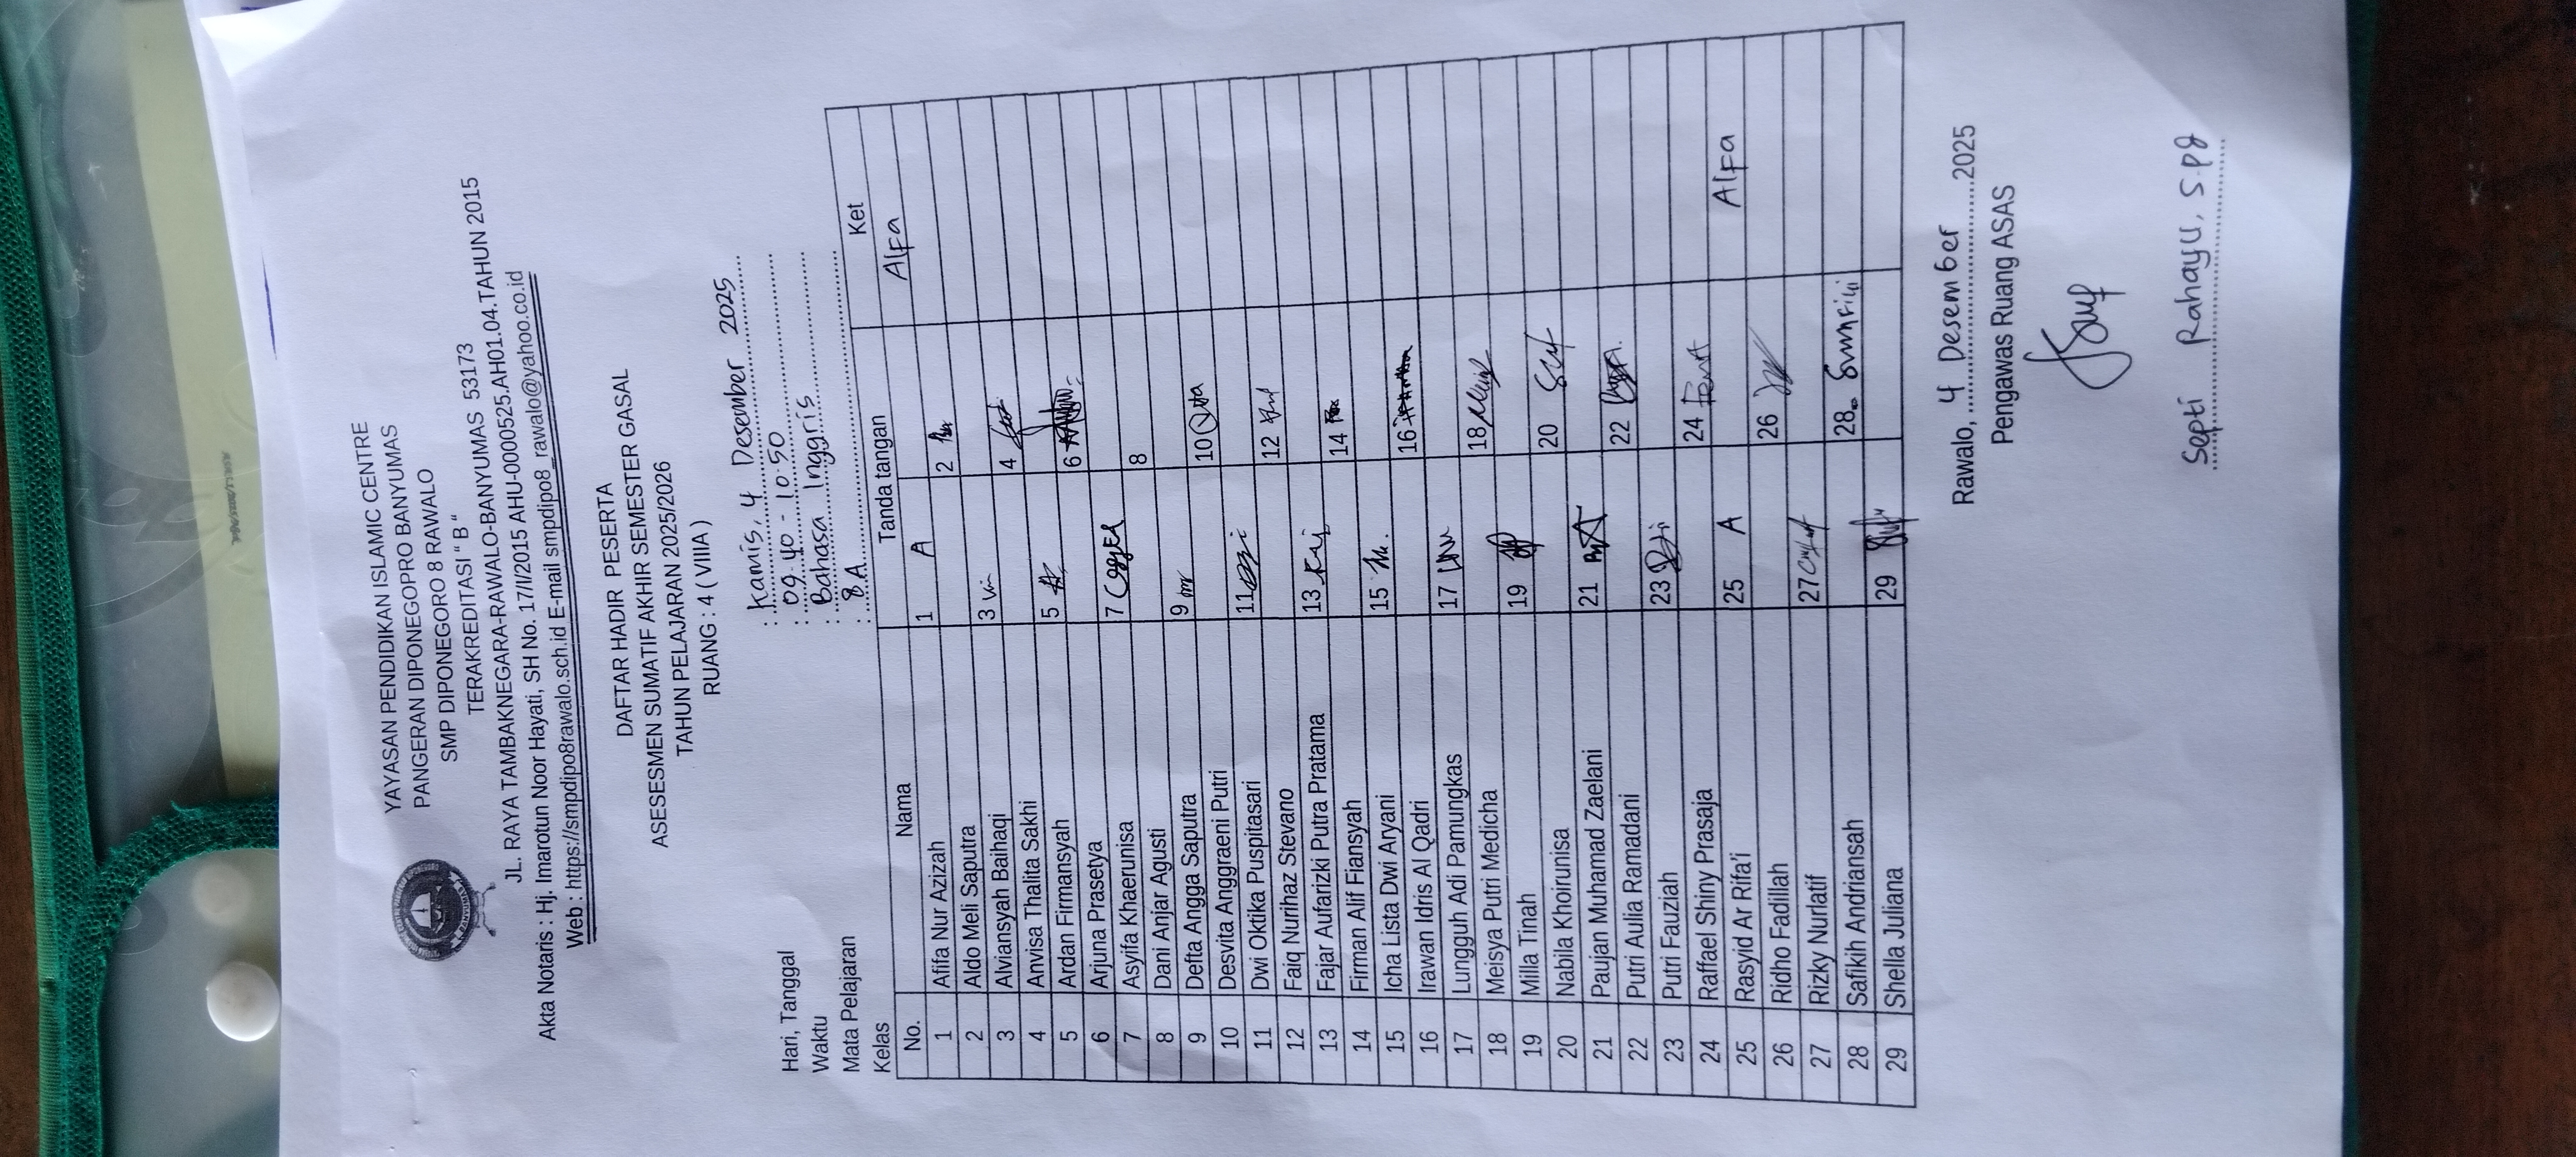 YAYASAN PENDIDIKAN ISLAMIC CENTRE
PANGERAN DIPONEGOPRO BANYUMAS
SMP DIPONEGORO 8 RAWALO
TERAKREDITASI " B "
JL. RAYA TAMBAKNEGARA-RAWALO-BANYUMAS 53173
Akta Notaris : Hj. Imarotun Noor Hayati, SH No. 17/I/2015 AHU-0000525.AH01.04.TAHUN 2015
Web : https://smpdipo8rawalo.sch.id E-mail smpdipo8_rawalo@yahoo.co.id
DAFTAR HADIR PESERTA
ASESESMEN SUMATIF AKHIR SEMESTER GASAL
TAHUN PELAJARAN 2025/2026
RUANG : 4 ( VIIIA )
Hari, Tanggal : Kamis, 4 Desember 2025
Waktu : 09.40 - 10.50
Mata Pelajaran : Bahasa Inggris
Kelas : 8A
No. Nama Tanda tangan Ket
1 Afifa Nur Azizah 1 A Alfa
2 Aldo Meli Saputra 2
3 Alviansyah Baihaqi 3
4 Anvisa Thalita Sakhi 4
5 Ardan Firmansyah 5
6 Arjuna Prasetya 6
7 Asyifa Khaerunisa 7
8 Dani Anjar Agusti 8
9 Defta Angga Saputra 9
10 Desvita Anggraeni Putri 10
11 Dwi Oktika Puspitasari 11
12 Faiq Nurihaz Stevano 12
13 Fajar Aufarizki Putra Pratama 13
14 Firman Alif Fiansyah 14
15 Icha Lista Dwi Aryani 15
16 Irawan Idris Al Qadri 16
17 Lungguh Adi Pamungkas 17
18 Meisya Putri Medicha 18
19 Milla Tinah 19
20 Nabila Khoirunisa 20
21 Paujan Muhamad Zaelani 21
22 Putri Aulia Ramadani 22
23 Putri Fauziah 23
24 Raffael Shiny Prasaja 24
25 Rasyid Ar Rifa'i 25 A Alfa
26 Ridho Fadillah 26
27 Rizky Nurlatif 27
28 Safikih Andriansah 28
29 Shella Juliana 29
Rawalo, 4 Desember 2025
Pengawas Ruang ASAS
Septi Rahayu, S.Pd